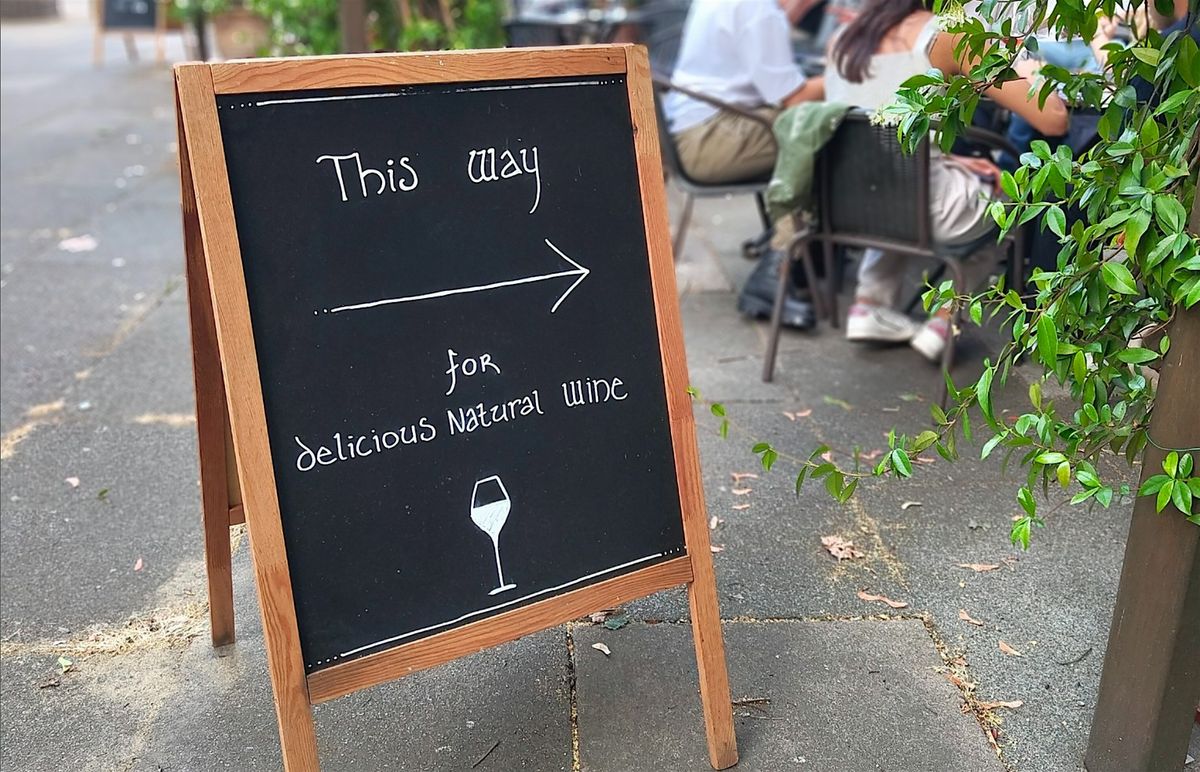 This way
for
delicious Natural wine